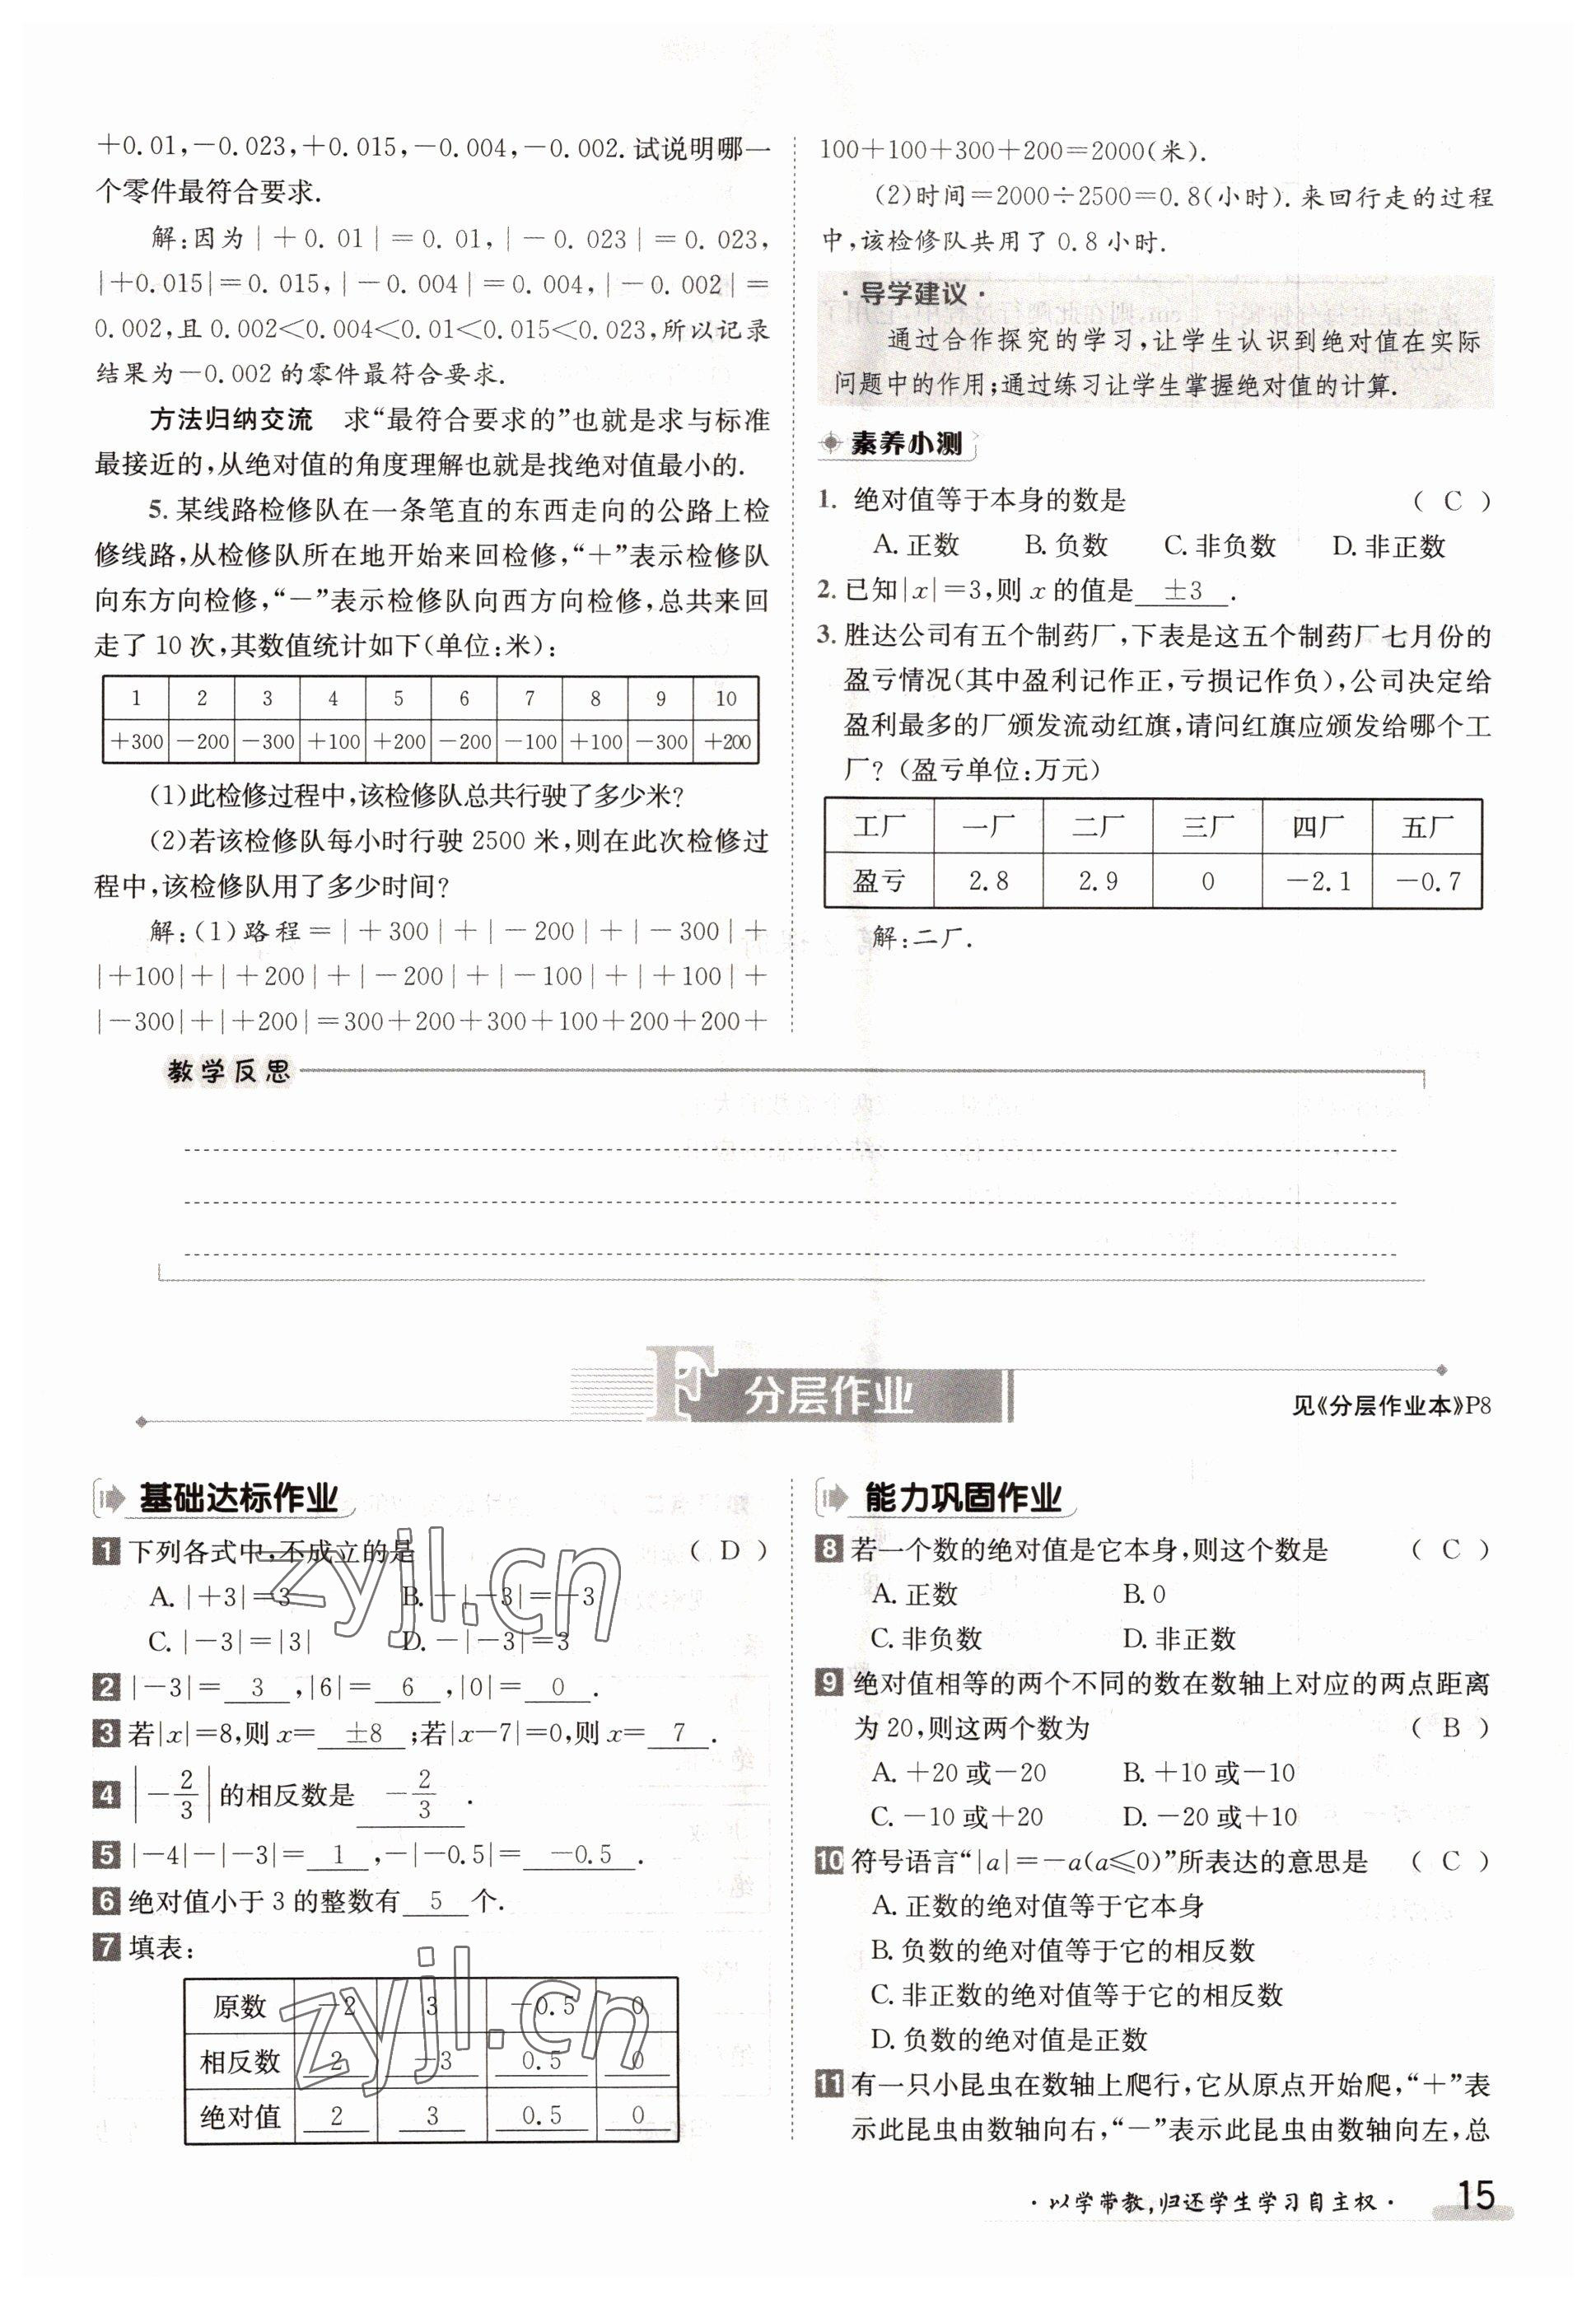 +0.01,-0.023,+0.015,-0.004,-0.002.试说明哪一
个零件最符合要求.
解:因为|+0.01|=0.01,|-0.023|=0.023,
|+0.015|=0.015,|-0.004|=0.004,|-0.002|=
0.002,且0.002<0.004<0.01<0.015<0.023,所以记录
结果为-0.002的零件最符合要求.
方法归纳交流 求“最符合要求的”也就是求与标准
最接近的,从绝对值的角度理解也就是找绝对值最小的.
5.某线路检修队在一条笔直的东西走向的公路上检
修线路,从检修队所在地开始来回检修,“+”表示检修队
向东方向检修,“-”表示检修队向西方向检修,总共来回
走了10次,其数值统计如下(单位:米):
1 2 3 4 5 6 7 8 9 10
+300 -200 -300 +100 +200 -200 -100 +100 -300 +200
(1)此检修过程中,该检修队总共行驶了多少米?
(2)若该检修队每小时行驶2500米,则在此次检修过
程中,该检修队用了多少时间?
解:(1)路程=|+300|+|-200|+|-300|+
|+100|+|+200|+|-200|+|-100|+|+100|+
|-300|+|+200|=300+200+300+100+200+200+
100+100+300+200=2000(米).
(2)时间=2000÷2500=0.8(小时).来回行走的过程
中,该检修队共用了0.8小时.
·导学建议·
通过合作探究的学习,让学生认识到绝对值在实际
问题中的作用;通过练习让学生掌握绝对值的计算.
素养小测
1. 绝对值等于本身的数是 ( C )
A.正数 B.负数 C.非负数 D.非正数
2.已知|x|=3,则x的值是 ±3 .
3.胜达公司有五个制药厂,下表是这五个制药厂七月份的
盈亏情况(其中盈利记作正,亏损记作负),公司决定给
盈利最多的厂颁发流动红旗,请问红旗应颁发给哪个工
厂?(盈亏单位:万元)
工厂 一厂 二厂 三厂 四厂 五厂
盈亏 2.8 2.9 0 -2.1 -0.7
解:二厂.
教学反思
F 分层作业
见《分层作业本》P8
基础达标作业
1 下列各式中,不成立的是 ( D )
A.|+3|=3 B.-|-3|=-3
C.|-3|=|3| D.-|-3|=3
2 |-3|= 3 ,|6|= 6 ,|0|= 0 .
3 若|x|=8,则x= ±8 ;若|x-7|=0,则x= 7 .
4 |-2/3|的相反数是 -2/3 .
5 |-4|-|-3|= 1 ,-|-0.5|= -0.5 .
6 绝对值小于3的整数有 5 个.
7 填表:
原数 -2 3 -0.5 0
相反数 2 -3 0.5 0
绝对值 2 3 0.5 0
zyjl.cn
zyjl.cn
能力巩固作业
8 若一个数的绝对值是它本身,则这个数是 ( C )
A.正数 B.0
C.非负数 D.非正数
9 绝对值相等的两个不同的数在数轴上对应的两点距离
为20,则这两个数为 ( B )
A.+20或-20 B.+10或-10
C.-10或+20 D.-20或+10
10 符号语言“|a|=-a(a≤0)”所表达的意思是 ( C )
A.正数的绝对值等于它本身
B.负数的绝对值等于它的相反数
C.非正数的绝对值等于它的相反数
D.负数的绝对值是正数
11 有一只小昆虫在数轴上爬行,它从原点开始爬,“+”表
示此昆虫由数轴向右,“-”表示此昆虫由数轴向左,总
·以学带教,归还学生学习自主权· 15